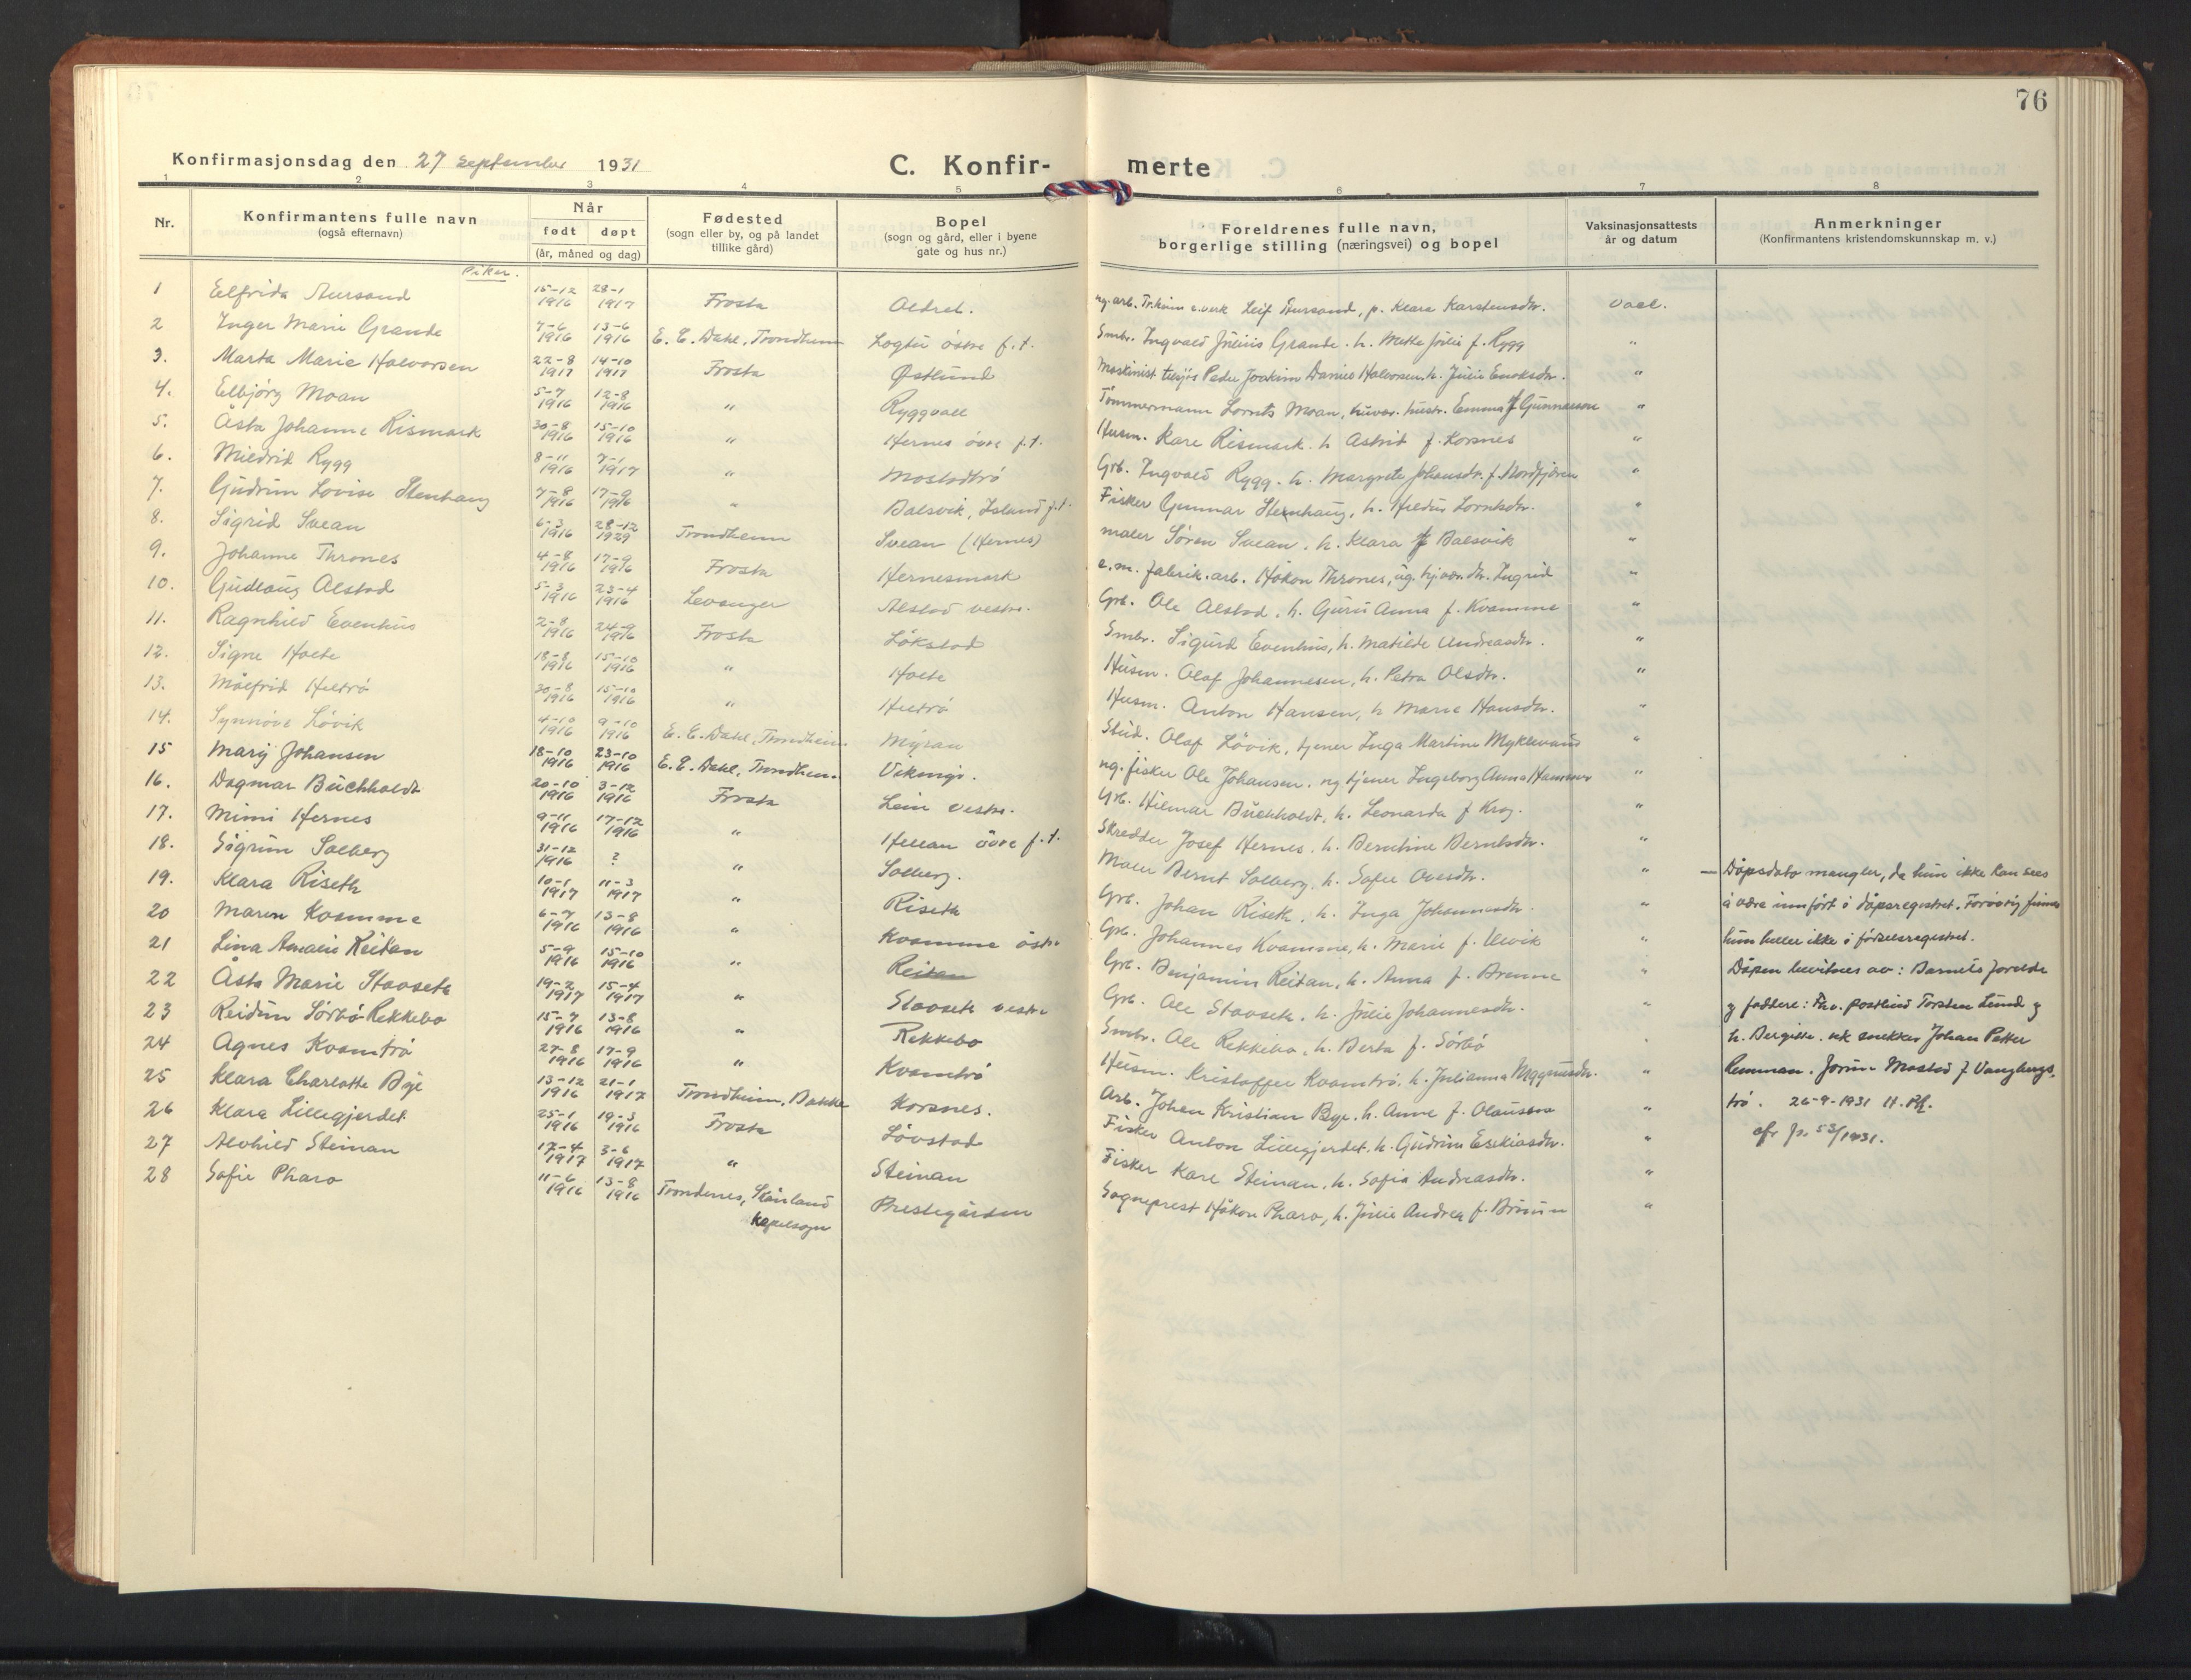 76
Konfirmasjonsdag den 27 september 1931
C. Konfir- merte
1 2 3 4 5 6 7 8
Nr.
Konfirmantens fulle navn
(også efternavn)
Når
født døpt
(år, måned og dag)
Fødested
(sogn eller by, og på landet
tillike gård)
Bopel
(sogn og gård, eller i byene
gate og hus nr.)
Foreldrenes fulle navn,
borgerlige stilling (næringsvei) og bopel
Vaksinasjonsattests
år og datum
Anmerkninger
(Konfirmantens kristendomskunnskap m. v.)
Piker.
1 Elfrida Aursand 15-12 1916 28-1 1917 Frosta Aldret. ug. arb. Tr.heim e.verk Leif Aursand, p. Klara Karstensdtr. vacc.
2 Inger Marie Grande 7-6 1916 13-6 1916 E. C. Dahl, Trondheim Logtu östre f.t. Smbr. Ingvald Julius Grande. h. Mette Julie f. Rygg "
3. Marta Marie Halvorsen 22-8 1917 14-10 1917 Frosta Østlund Maskinist tilsjös Peder Joakim Daniel Halvorsen. h. Julie Enoksdtr. "
4. Elbjörg Moan 5-7 1916 12-8 1916 " Ryggvall Tömmermann Lornts Moan, hustr. Emma f Gunnarson "
5. Åsta Johanne Rismark 30-8 1916 15-10 1916 " Hernes övre f.t. Husm. Kare Rismark. h Astrid f. Korsnes "
6. Mildrid Rygg 8-11 1916 7-1 1917 " Mostadtrö Grb. Ingvald Rygg. h. Margrete Johansdr. f. Nordfjæren "
7. Gudrun Lovise Stenhaug 7-8 1916 17-9 1916 " Balsvik, Island f.t. Fisker Gunnar Stenhaug, h. Hildur Lorntsdtr. "
8. Sigrid Svean 6-3 1916 28-12 1929 Trondheim Svean (Hernes) maler Sören Svean. h. Klara f Balsvik "
9. Johanne Thrones 4-8 1916 17-9 1916 Frosta Hernesmark e.m. fabrik.arb. Håkon Thrones, ug. hjvær. dtr. Ingrid "
10. Gudlaug Alstad 5-3 1916 23-4 1916 Levanger Alstad vestre. Grb. Ole Alstad. h. Guru Anna f. Kvamme "
11. Ragnhild Evenhus 2-8 1916 24-9 1916 Frosta Lökstad Smbr. Sigurd Evenhus, h. Matilde Andreasdtr. "
12. Signe Holte 18-8 1916 15-10 1916 " Holte Husm. Olaf Johannesen, h. Petra Olsdtr. "
13. Målfrid Hiltrö 20-8 1916 15-10 1916 " Hiltrö Husm. Anton Hansen, h Marie Hansdtr. "
14. Synnöve Lövik 4-10 1916 9-10 1916 E. C. Dahl, Trondheim Myran Stud. Olaf Lövik, tjener Inga Martine Myklevand "
15 Mary Johansen 18-10 1916 23-10 1916 E. C. Dahl, Trondheim Vikings. ug. fisker Ole Johansen. ug tjener Ingeborg Anna Hammer "
16. Dagmar Buchholdt 20-10 1916 3-12 1916 Frosta Lein vestre. Grb. Hilmar Buchholdt, h. Leonarda f Krog. "
17. Mimi Hernes 9-11 1916 17-12 1916 " Hellan övre f.t. Skredder Josef Hernes. h. Berntine Berntsdtr. "
18. Sigrun Solberg 31-12 1916 ? " Solberg. Maler Bernt Solberg. h. Sofie Olesdtr. " — Dåpsdato mangler, da hun ikke kan sees
19. Klara Riseth 10-1 1917 11-3 1917 " Riseth Grb. Johan Riseth, h. Inga Johannesdtr. " å være innfört i dåpsregistret. Forövrig finnes
20 Maren Kvamme 6-7 1916 13-8 1916 " Kvamme östre Grb. Johannes Kvamme, h. Marie f. Ulvik " hun heller ikke i födselsregistret.
21 Lina Amalie Reitan 5-9 1916 15-10 1916 " Reitan Grb. Benjamin Reitan, h. Anna f. Brenne " Dåpen bevitnes av: Barnets foreldre
22 Åsta Marie Stavseth 19-2 1917 15-4 1917 " Stavseth vestre Grb. Ole Stavseth. h. Julie Johannesdtr. " og faddere: Fhv. postbud Torsten Lund og
23 Reidun Sörbö-Rekkebo 15-7 1916 13-8 1916 " Rekkebo Smbr. Ole Rekkebo. h. Berta f. Sörbö " h. Bergitte. uk snekker Johan Petter
24 Agnes Kvamtrö 27-8 1916 17-9 1916 " Kvamtrö Husm. Kristoffer Kvamtrö. h. Julianna Magnusdtr. " Remman. Jorun Mostad f Vangbergs,
25 Klara Charlotte Bye 13-12 1916 21-1 1917 Trondheim, Bakke Korsnes. Arb. Johan Kristian Bye. h. Anne f. Olausson " trö. 26-9-1931 H. Ph.
26 Klara Lillegjerdet 25-1 1916 19-3 1916 Frosta Lövstad Fisker Anton Lillegjerdet. h. Gudrun Esekiasdtr. " cfr jr. 53/1931.
27 Alvhild Steinan 17-4 1917 3-6 1917 " Steinan Fisker Kare Steinan. h. Sofia Andreasdtr. "
28 Sofie Pharo 11-6 1916 13-8 1916 Trondenes, Skånland Prestegården Sogneprest Håkon Pharo, h. Julie Andrea f. Bruun "
kapelsogn